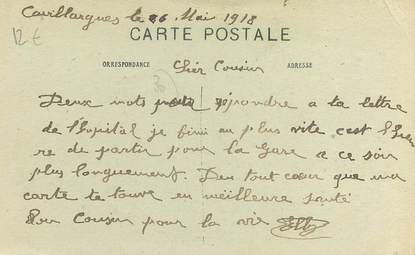 Cavillargues le 26 Mai 1918
12 €
CARTE POSTALE
CORRESPONDANCE
ADRESSE
Cher Cousin
Deux mots pour répondre a ta lettre
de l'hopital je finis au plus vite c'est l'heu
re de partir pour la Gare a ce soir
plus longuement. Deu tout cœur que ma
carte te touve en meilleure santé
Ton Cousin pour la vie